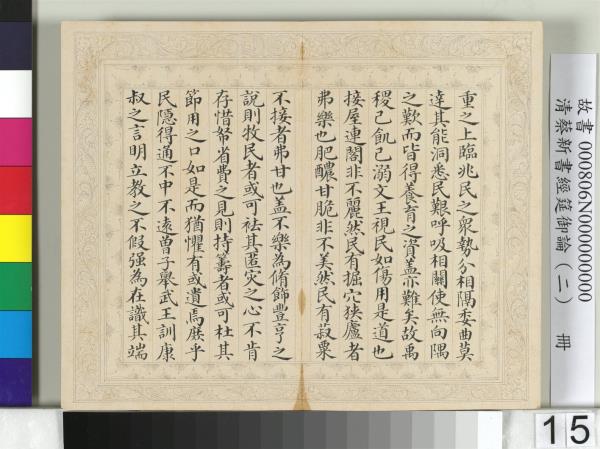 重之上臨兆民之衆勢分相隔委曲莫
達其能洞悉民艱呼吸相關使無向隅
之歎而皆得養育之資蓋亦難矣故禹
稷己飢己溺文王視民如傷用是道也
接屋連閣非不麗然民有掘穴狹廬者
弗樂也肥醲甘脆非不美然民有菽粟
不接者弗甘也蓋不樂為脩飾豐亨之
說則牧民者或可袪其匿灾之心不肯
存惜帑省費之見則持籌者或可杜其
節用之口如是而猶懼有或遺焉庶乎
民隱得通不中不遠曽子舉武王訓康
叔之言明立教之不假强為在識其端
故書 000806N000000000
清蔡新書經筵御論(二) 冊
15